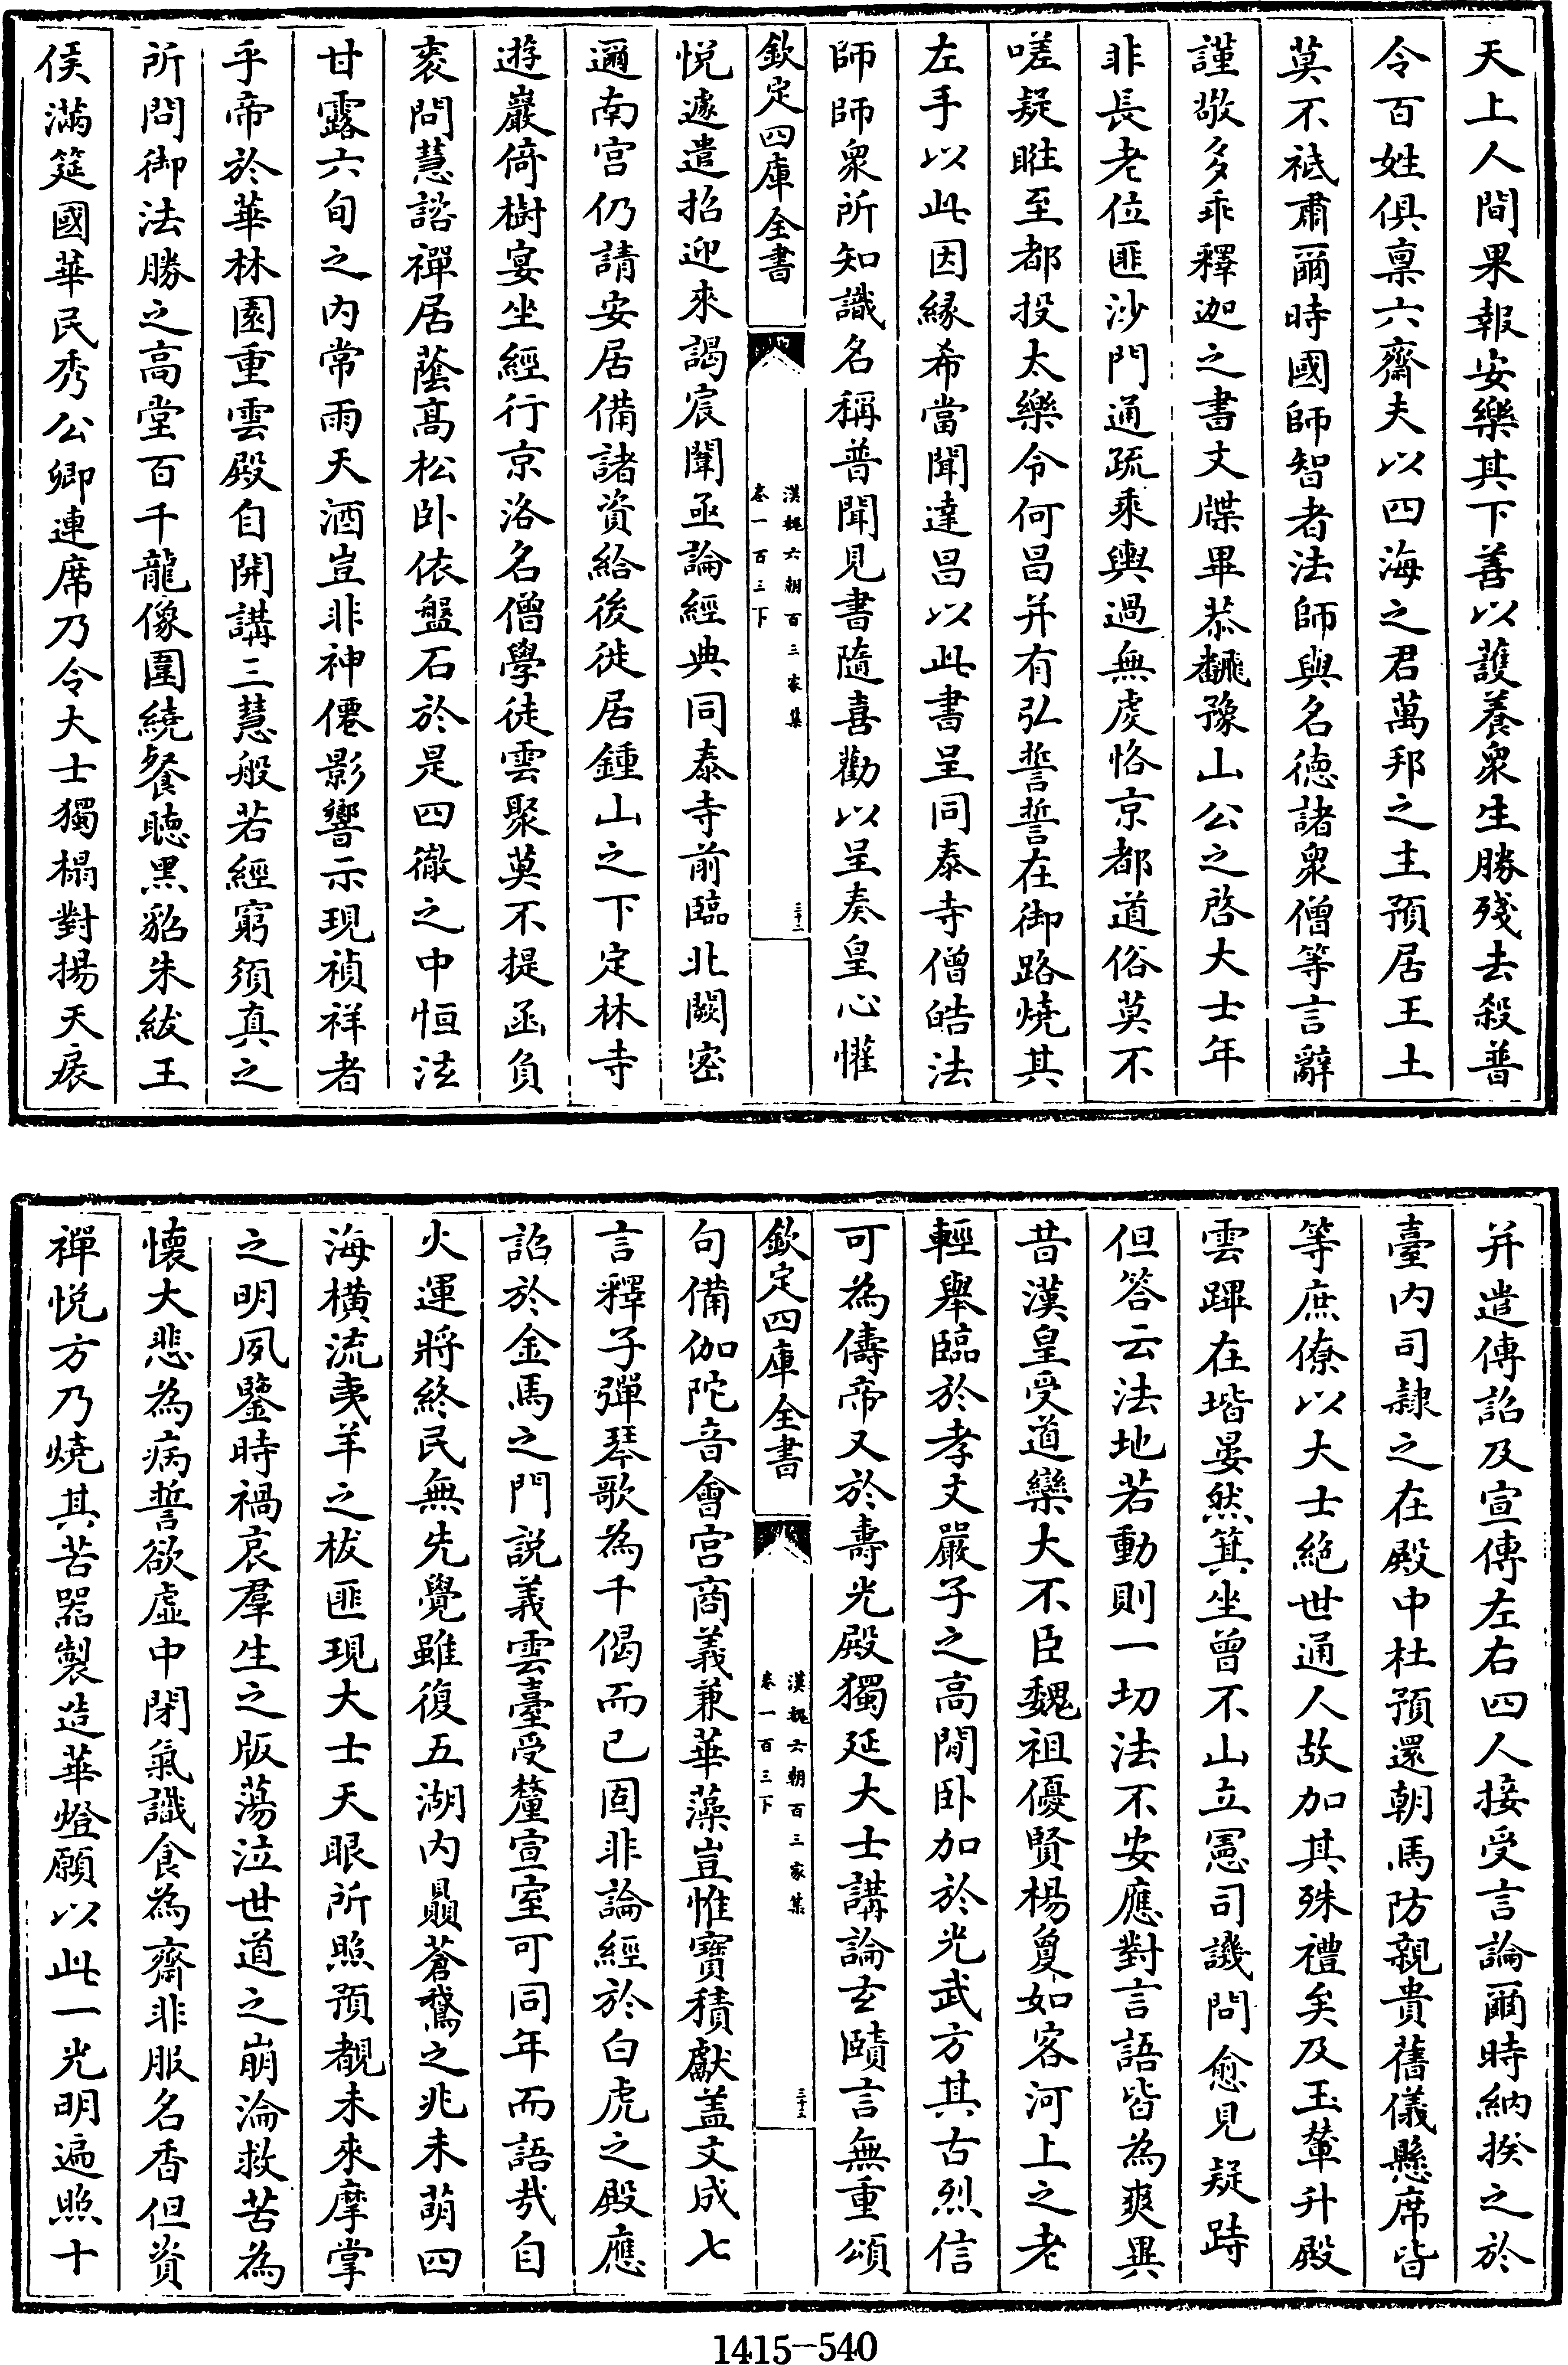 天上人間果報安樂其下善以䕶養衆生勝殘去殺普
令百姓俱稟六齋夫以四海之君萬邦之主預居王土
莫不祗肅爾時國師智者法師與名德諸衆僧等言辭
謹敬多乖釋迦之書文牒畢恭翻豫山公之啓大士年
非長老位匪沙門通疏乘輿過無虔恪京都道俗莫不
嗟疑暀至都投太樂令何昌并有弘誓誓在御路燒其
左手以此因縁希當聞達昌以此書呈同泰寺僧皓法
師師衆所知識名稱普聞見書隨喜勸以呈奏皇心懽
欽定四庫全書
漢魏六朝百三家集
卷一百三下
三十二
悦遽遣招迎來謁宸闈亟論經典同泰寺前臨北闕密
邇南宫仍請安居備諸資給後徙居鍾山之下定林寺
遊巖倚樹宴坐經行京洛名僧學徒雲聚莫不提函負
袠問慧諮禪居蔭髙松卧依盤石於是四徹之中恒泫
甘露六旬之内常雨天酒豈非神僊影響示現禎祥者
乎帝於華林園重雲殿自開講三慧般若經窮須真之
所問御法勝之高堂百千龍像圍繞餐聽黑貂朱紱王
侯滿筵國華民秀公卿連席乃令大士獨榻對揚天扆
并遣傳詔及宣傳左右四人接受言論爾時納揆之於
臺内司隷之在殿中杜預還朝馬防親貴舊儀懸席皆
等庶僚以大士絶世通人故加其殊禮矣及玉輦升殿
雲蹕在堦晏然箕坐曾不山立憲司譏問愈見疑跱
但答云法地若動則一切法不安應對言語皆為爽異
昔漢皇受道欒大不臣魏祖優賢楊夐如客河上之老
輕舉臨於孝文嚴子之高閒卧加於光武方其古烈信
可為儔帝又於夀光殿獨延大士講論玄賾言無重頌
欽定四庫全書
漢魏六朝百三家集
卷一百三下
三十三
句備伽陀音會宫商義兼華藻豈惟寶積獻盖文成七
言釋子彈琴歌為千偈而已固非論經於白虎之殿應
詔於金馬之門説義雲臺受釐宣室可同年而語㢤自
火運將終民無先覺雖復五湖内贔蒼鵞之兆未萌四
海横流夷羊之祓匪現大士天眼所照預覩未來摩掌
之明夙鑒時禍哀羣生之版蕩泣世道之崩淪救苦為
懐大悲為病誓欲虚中閉氣識食為齋非服名香但資
禪悦方乃燒其苦器製造華燈願以此一光明遍照十
1415-540